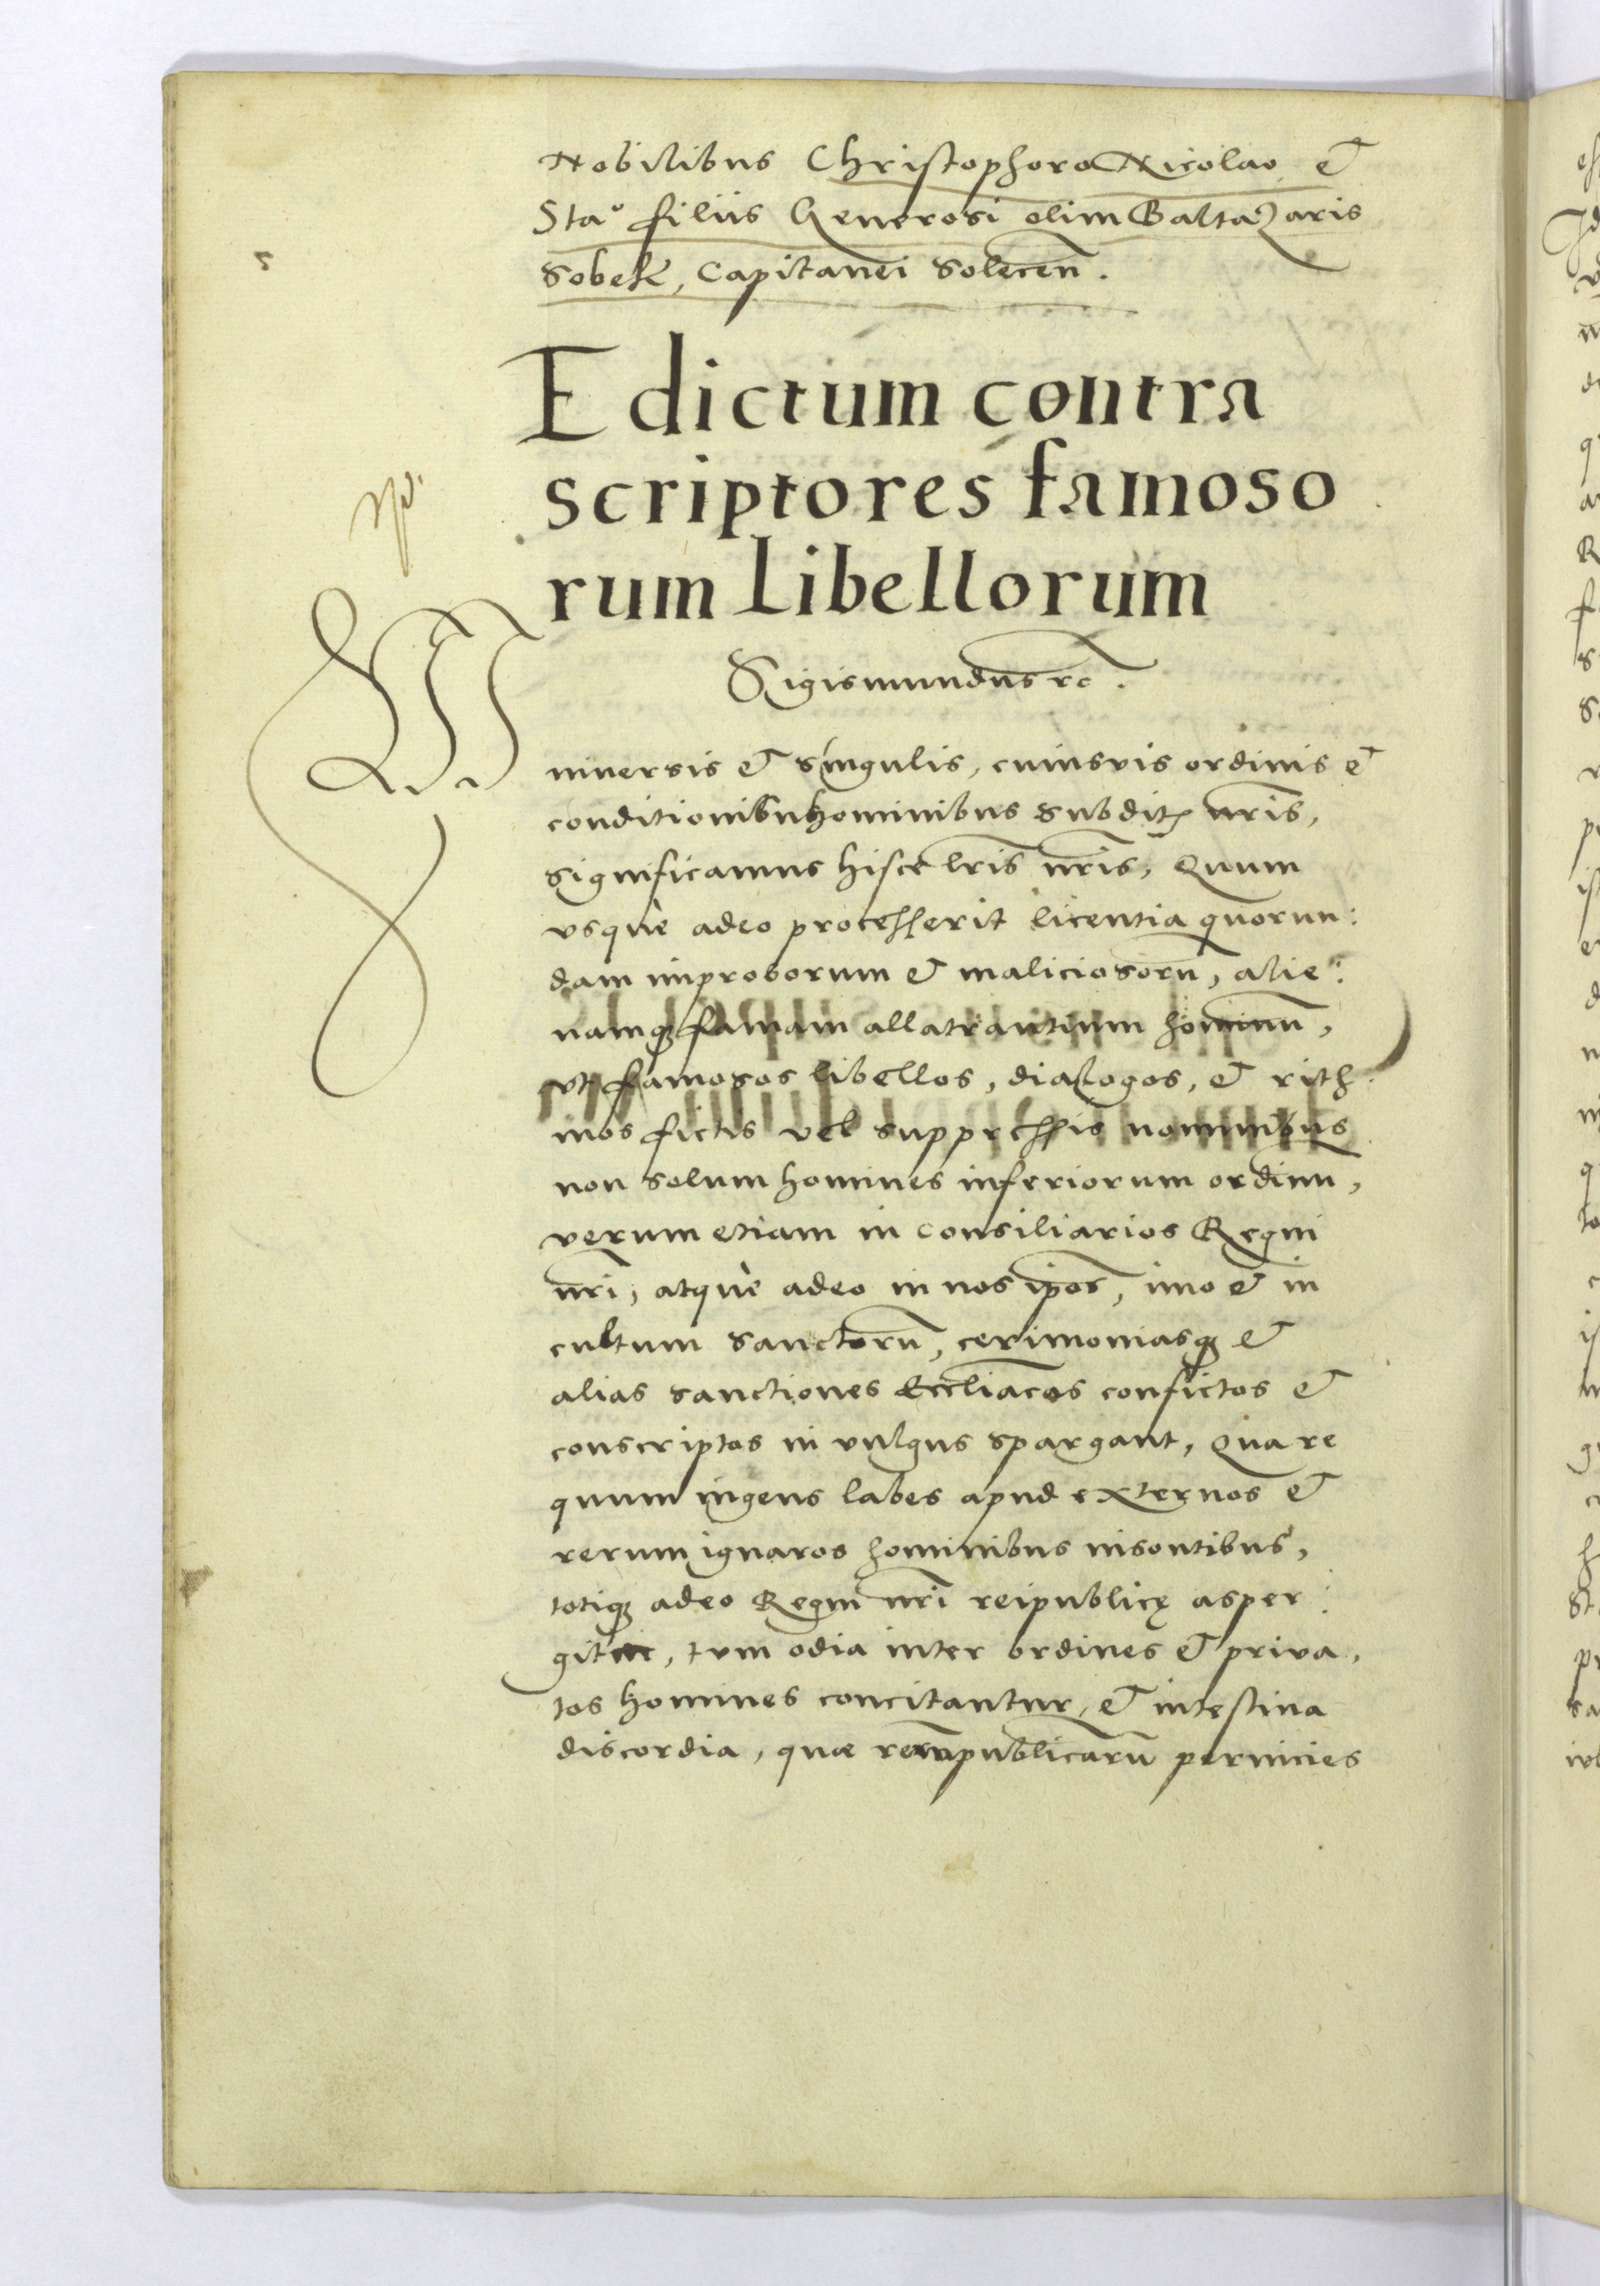 Nobilibus Christophoro Nicolao et
Sta° filiis Generosi olim Baltazaris
Sobek, Capitanei Solecen̄.
Edictum contra
scriptores famoso
rum Libellorum
Sigismundus rc.
Vniversis et singulis, cuiusvis ordinis et
conditionis hominibus subditꝭ nr̄is,
significamus hisce lr̄is nr̄is, Quum
vsque adeo processerit licentia quorun:
dam improborum et maliciosorū, alie:
namqꝫ famam allatrantium hominū,
vt famosos libellos, dialogos, et rith
mos fictis vel suppressis nominibus
non solum homines inferiorum ordinū,
verum etiam in consiliarios Regni
nr̄i, atque adeo in nos ip̄os, imo et in
cultum sanctorū, cerimoniasqꝫ et
alias sanctiones Eccliācas confictos et
conscriptos in vulgus spargant, Qua re
quum ingens labes apud externos et
rerum ignaros hominibus insontibus,
totiqꝫ adeo Regni nr̄i reipublicę asper:
gitur, tum odia inter ordines et priva,
tos homines concitantur, et intestina
discordia, quae rerumpublicarū pernicies